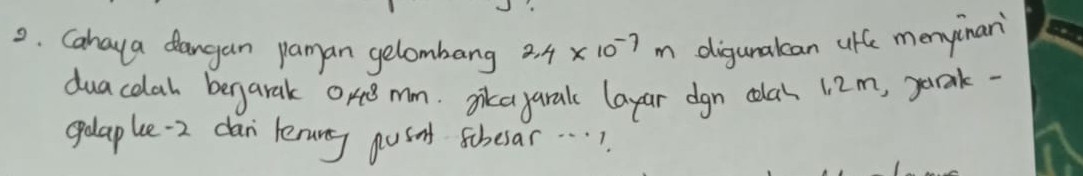 2. Cahaya dangan panjan gelombang 2.4 × 10⁻⁷ m digunakan utk menyinari
dua celah berjarak 0,48 mm. jika jarak layar dgn celah 1,2 m, jarak -
gelap ke-2 dari terang pusat sebesar ....?